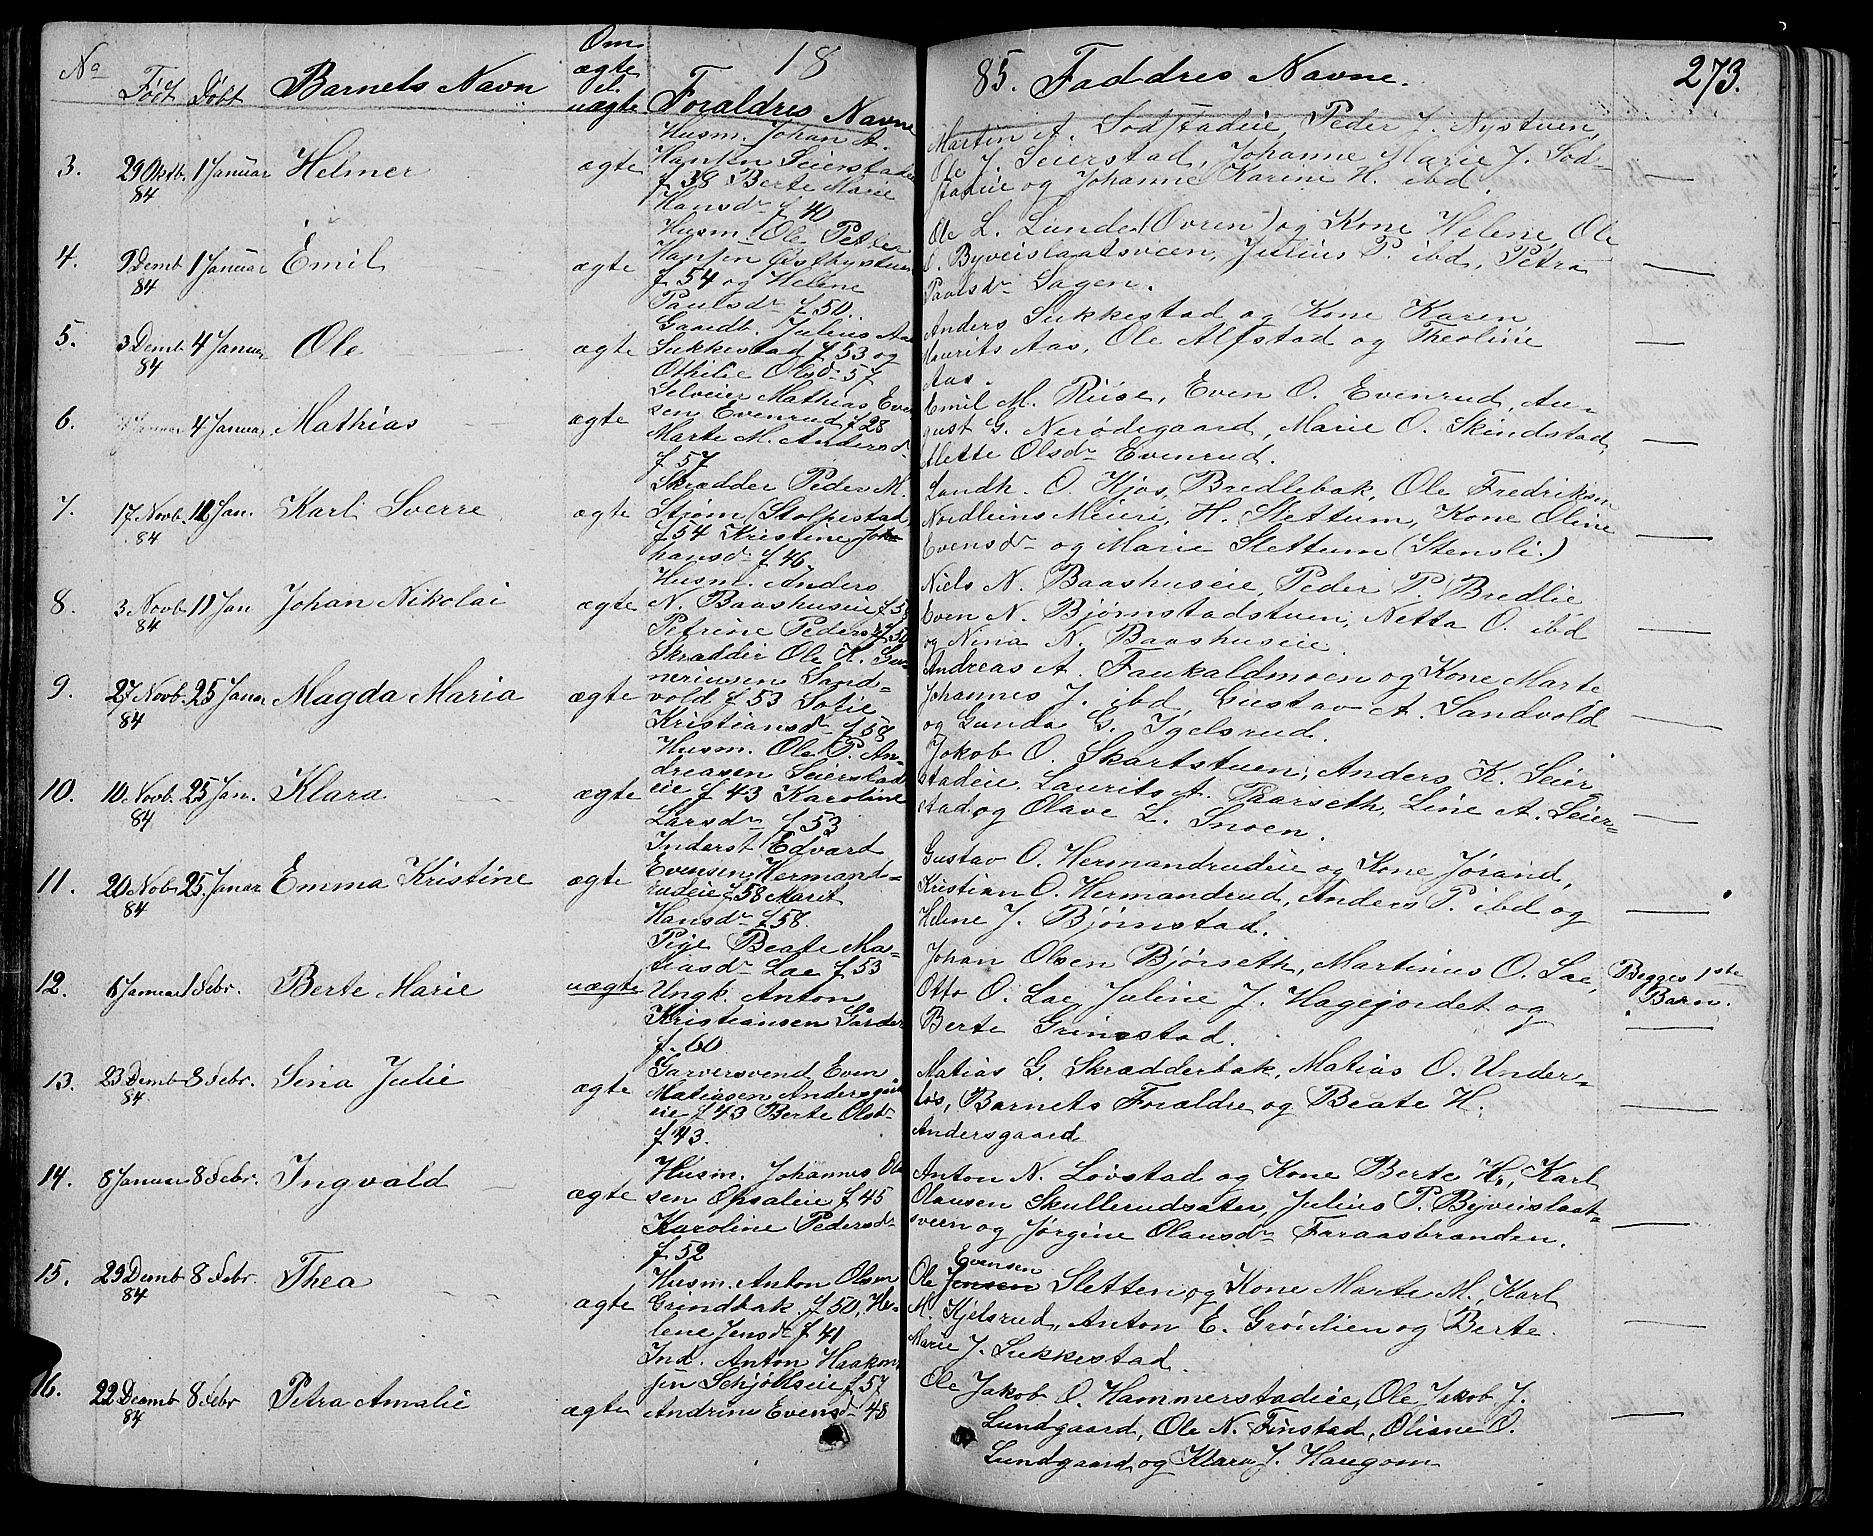 No Født Døbt Barnets Navn Om ægte el. uægte Foraldres Navne 1885. Faddres Navne. 273.
3. 29 Oktb. 84 1 Januar Helmer ægte
Husm. Johan A.
Hansen Seierstadeie
f 38 Berte Marie
Hansdr f 40
Martin A. Sodstadeie, Peder J. Nystuen,
Ole J. Seierstad, Johanne Marie J. Sod-
stadeie og Johanne Karine H. ibd.
4. 9 Demb 84 1 Januar Emil ægte
Husm. Ole Petter
Hansen Østhystuen
f 54 og Helene
Paulsdr f 50.
Ole L. Lunde (Øvren) og Kone Helene, Ole
O. Byveislaatsveen, Julius P. ibd, Petra
Paulsdr Sagen.
5. 3 Demb 84 4 Januar Ole ægte
Gaardb. Julius Aas
Sukkestad f 53 og
Othilie Olsdr 57
Anders Sukkestad og Kone Karen
Laurits Aas, Ole Alfstad og Theoline
Aas.
6. 4 Januar Mathias ægte
Selveier Mathias Even
sen Evenrud f 28
Marte M. Andersdr
f 57
Emil M. Riise, Even O. Evenrud, Au-
gust G. Nerødegaard, Marie O. Skindstad,
Mette Olsdr Evenrud.
7. 17 Novb. 84 11 Jan. Karl Sverre ægte
Skrædder Peder M.
Strøm (Stolpestad)
f 54 Kristine Jo-
hansdr f 46.
Landh. O. Kjos, Bredlebak, Ole Fredriksen
Nordleins Meieri, H. Slettum, Kone Oline
Evensdr og Marie Slettum (Stensli.)
8. 3 Novb. 84 11 Jan Johan Nikolai ægte
Husm. Anders
N. Baashuseie
Petrine Pedersdr f 50
Niels N. Baashuseie, Peder P. Bredlie,
Even N. Bjørnstadstuen, Netta O. ibd
og Nina N. Baashuseie.
9. 27 Novb. 84 25 Januar Magda Maria ægte
Skrædder Ole K. Gu-
neriussen Sand-
vold f 53 Sofie
Kristiansdr f 58
Andreas A. Faukaldmoen og Kone Marte
Johannes J. ibd, Gustav A. Sandvold
og Gunda G. Igelsrud.
10. 10 Novb. 84 25 Jan. Klara ægte
Husm. Ole P. An-
dreasen Seierstad
eie f 43 Karoline
Larsdr f 53
Jakob O. Skartstuen, Anders K. Seier-
stadeie, Laurits A. Paarseth, Line A. Seier-
stad og Olave L. Snoen.
11. 20 Nob 84 25 Januar Emma Kristine ægte
Inderst Edvard
Evensen Hermand-
rudeie f 58 Marit
Hansdr f 58.
Gustav O. Hermandrudeie og Kone Jørand,
Kristian O. Hermandrud, Anders P. ibd og
Helene J. Bjørnstad.
12. 6 Januar 1 Febr. Berte Marie uægte
Pige Beate Ma-
tiasdr Lae f 53
Ungk. Anton
Kristiansen Gaarder
f. 60
Johan Olsen Bjørseth, Martinus O. Lae,
Otto O. Lae, Juline J. Hagejordet og
Berte Grimstad.
Begges 1ste
Barn.
13. 23 Demb 84 8 Febr. Sina Julie ægte
Garversvend Even
Matiasen Andersgaard
eie f 43 Berte Olsdr
f 43.
Matias G. Skrædderbak, Matias O. Under-
løs, Barnets Forældre og Beate H.
Andersgaard
14. 8 Januar 8 Febr. Ingvald ægte
Husm. Johannes Ola
sen Opsaleie f 45
Karoline Pedersdr
f 52
Anton N. Lovstad og Kone Berte H., Karl
Olausen Skullerudsæter, Julius P. Byveislaat-
sveen og Jørgine Olausdr Faraasbranden.
15. 29 Demb 84 8 Febr. Thea ægte
Husm. Anton Olsen
Grindbak f 50, He-
lene Jensdr f 41
Evensen
Ole Jensen Sletten og Kone Marte M., Karl
M. Kjelsrud, Anton E. Grønlien og Berte
Marie J. Sukkestad.
16. 22 Decmb 84 8 Febr Petra Amalie ægte
Ind. Anton Haakon
sen Schjøllseie f 57
Andrine Evensdr 48
Ole Jakob O. Hammerstadeie, Ole Jakob J.
Lundgaard, Ole N. Finstad, Oliane O.
Lundgaard og Klara J. Haugom